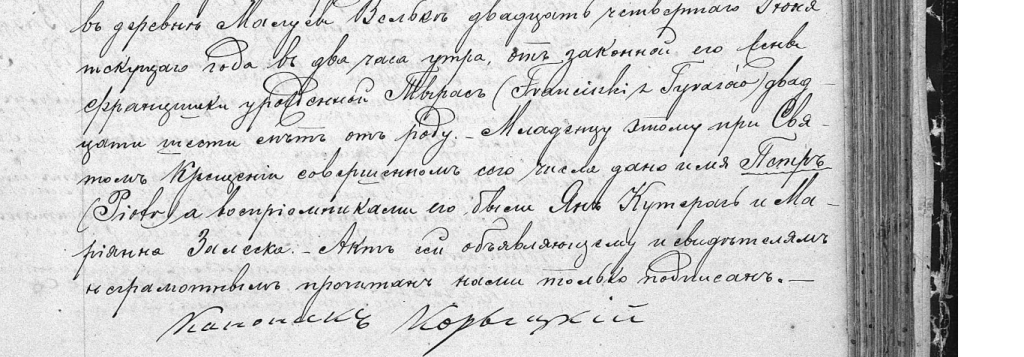 въ деревнѣ Малуей Велькѣ двадцать четвертаго Іюня
текущаго года въ два часа утра, отъ законной его жены
Францишки урожденной Тырасъ (Franciszki z Tyrasów) двад-
цати шести лѣтъ отъ роду. - Младенцу этому при Свя-
томъ Крещеніи совершенномъ сего числа дано имя Петръ
(Piotr) а воспріемниками его были Янъ Кутерахъ и Ма-
ріянна Залеска. - Актъ сей объявляющему и свидѣтелямъ
неграмотнымъ прочитанъ нами только подписанъ. -
Каноникъ